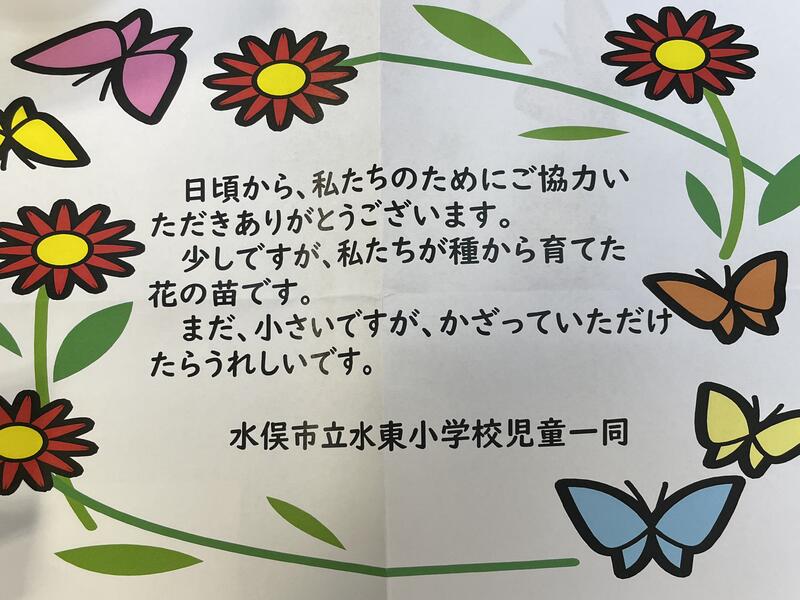 日頃から、私たちのためにご協力い
ただきありがとうございます。
少しですが、私たちが種から育てた
花の苗です。
まだ、小さいですが、かざっていただけ
たらうれしいです。
水俣市立水東小学校児童一同